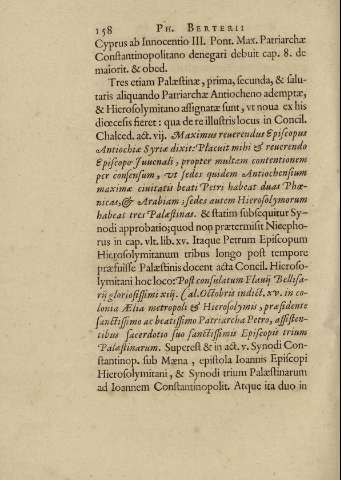 158 PH. BERTERII
Cyprus ab Innocentio III. Pont. Max. Patriarchæ
Constantinopolitano denegari debuit cap. 8. de
maiorit. & obed.
Tres etiam Palæstinæ, prima, secunda, & salu-
taris aliquando Patriarchæ Antiocheno ademptæ,
& Hierosolymitano assignatæ sunt, vt noua ex his
diœcesis fieret: qua de re illustris locus in Concil.
Chalced. act. vij. Maximus reuerendus Episcopus
Antiochiæ Syriæ dixit: Placuit mihi & reuerendo
Episcopo Iuuenali, propter multam contentionem
per consensum, vt sedes quidem Antiochensium
maximæ ciuitatis beati Petri habeat duas Phœ-
nicas, & Arabiam; sedes autem Hierosolymorum
habeat tres Palæstinas. & statim subsequitur Sy-
nodi approbatio; quod non prætermisit Nicepho-
rus in cap. vlt. lib. xv. Itaque Petrum Episcopum
Hierosolymitanum tribus longo post tempore
præfuisse Palæstinis docent acta Concil. Hieroso-
lymitani hoc loco: Post consulatum Flauij Bellisa-
rij gloriosissimi xiij. Cal. Octobris indict. xv. in co-
lonia Ælia metropoli & Hierosolymis, præsidente
sanctissimo ac beatissimo Patriarcha Petro, assisten-
tibus sacerdotio suo sanctissimis Episcopis trium
Palæstinarum. Superest & in act. v. Synodi Con-
stantinop. sub Mæna, epistola Ioannis Episcopi
Hierosolymitani, & Synodi trium Palæstinarum
ad Ioannem Constantinopolit. Atque ita duo in